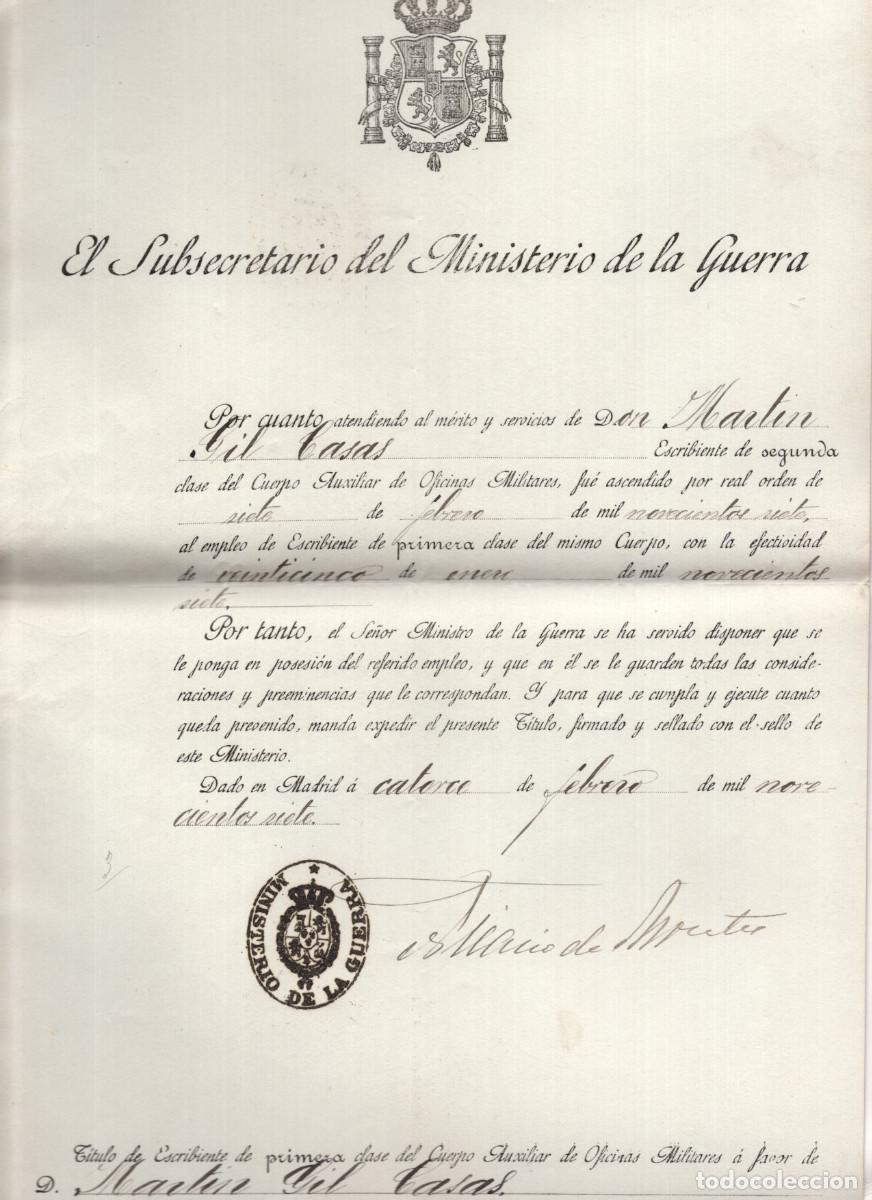 El Subsecretario del Ministerio de la Guerra
Por cuanto atendiendo al mérito y servicios de Don Martin
Gil Casas Escribiente de segunda
clase del Cuerpo Auxiliar de Oficinas Militares, fué ascendido por real orden de
siete de febrero de mil novecientos siete,
al empleo de Escribiente de primera clase del mismo Cuerpo, con la efectividad
de veinticinco de enero de mil novecientos
siete.
Por tanto, el Señor Ministro de la Guerra se ha servido disponer que se
le ponga en posesión del referido empleo, y que en él se le guarden todas las conside-
raciones y preeminencias que le correspondan. Y para que se cumpla y ejecute cuanto
queda prevenido, manda expedir el presente Título, firmado y sellado con el sello de
este Ministerio.
Dado en Madrid á catorce de febrero de mil nove-
cientos siete.
3
MINISTERIO DE LA GUERRA
de
Título de Escribiente de primera clase del Cuerpo Auxiliar de Oficinas Militares á favor de
D. Martin Gil Casas.
todocoleccion